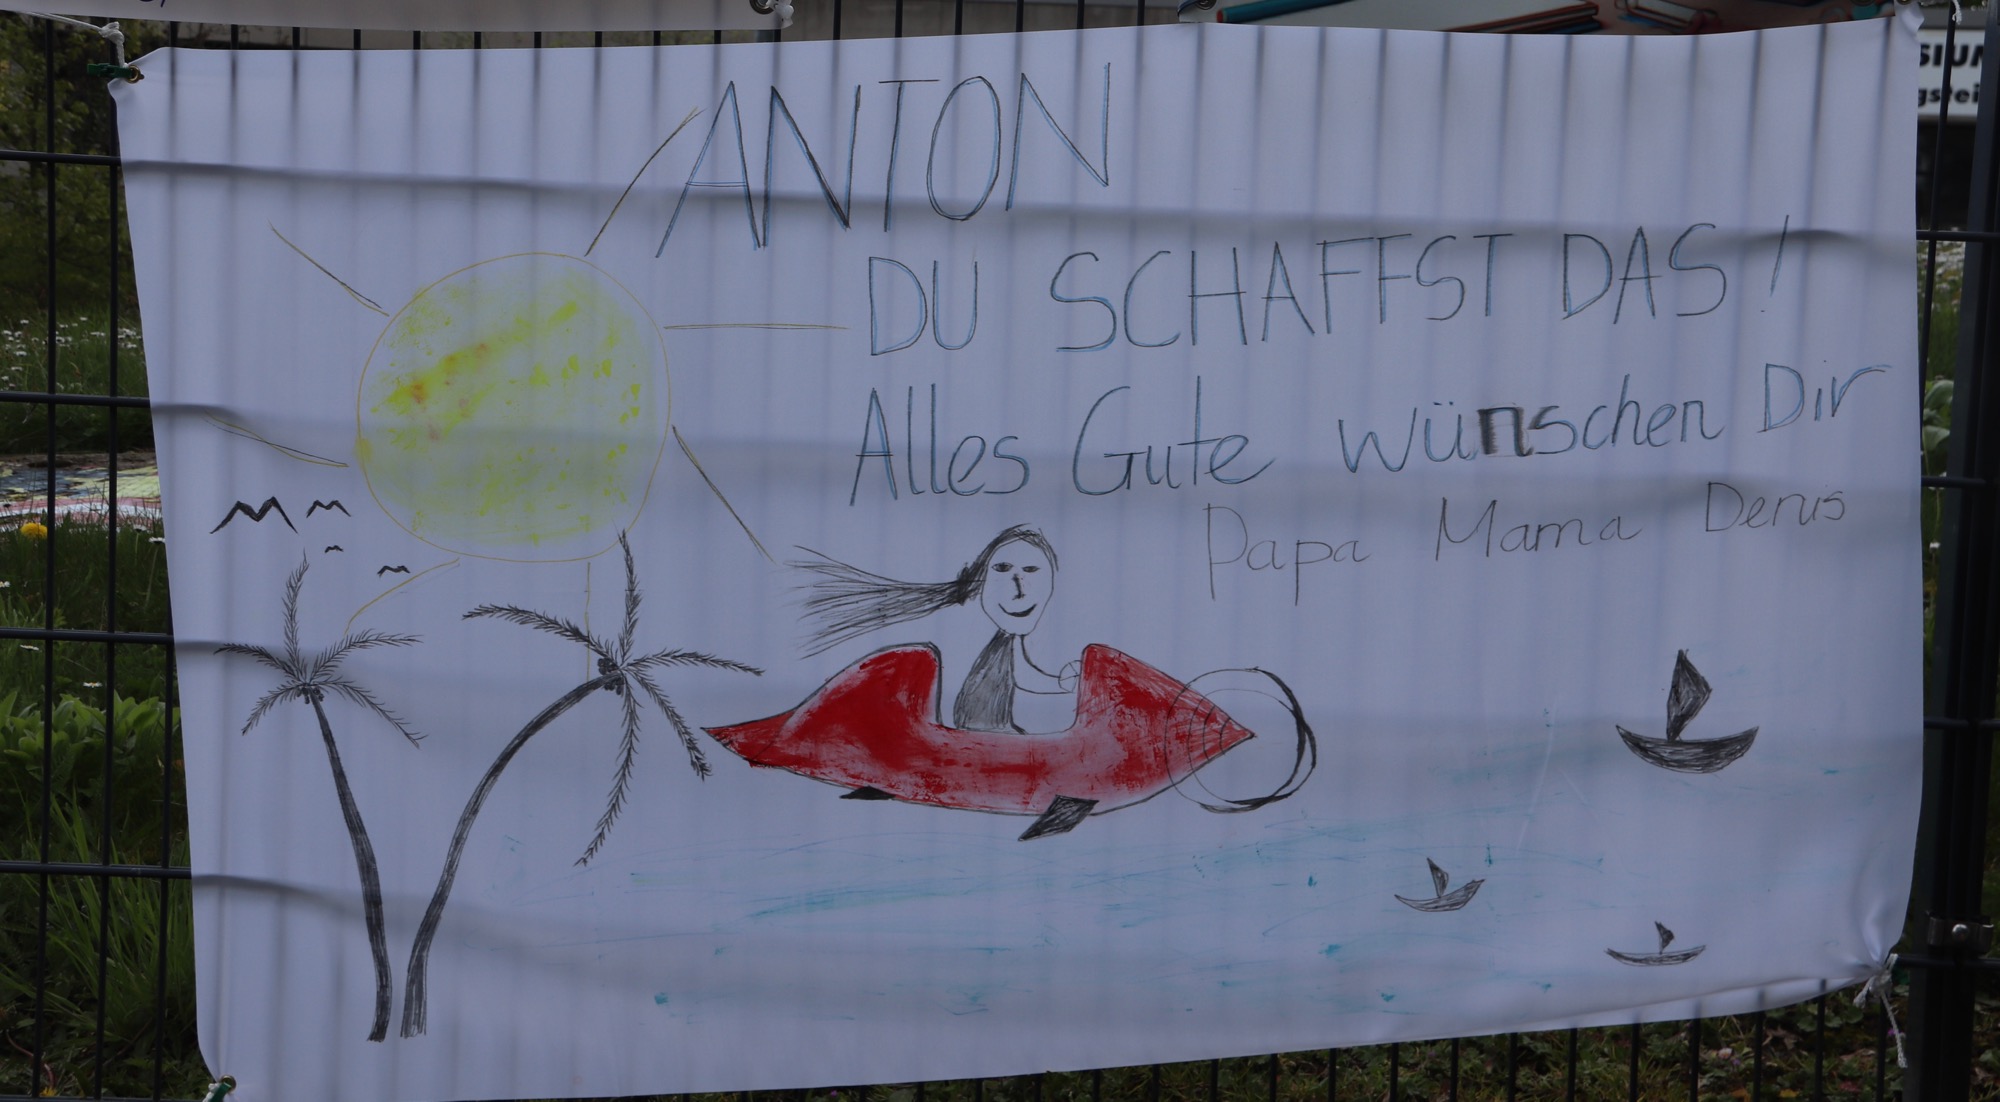 ANTON
DU SCHAFFST DAS!
Alles Gute wünschen Dir
Papa Mama Denis